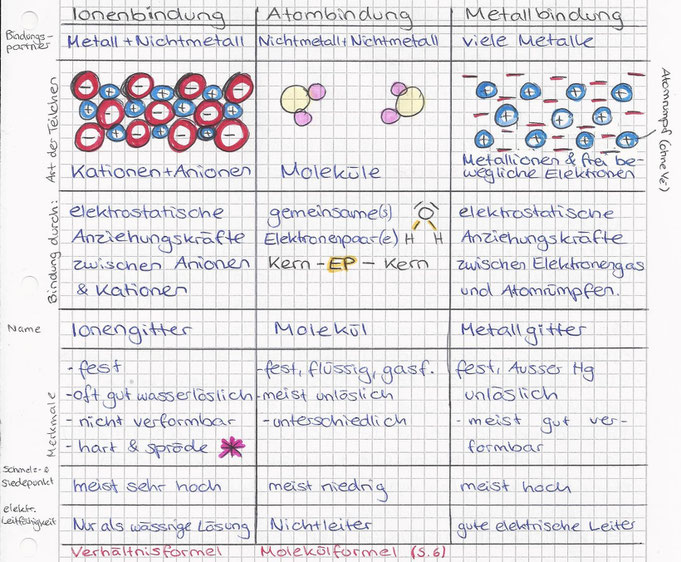 Ionenbindung Atombindung Metallbindung
Bindungs-
partner
Metall + Nichtmetall Nichtmetall + Nichtmetall viele Metalle
Art der Teilchen
Atomrumpf (ohne Ve⁻)
Kationen + Anionen Moleküle Metallionen & frei be-
wegliche Elektronen
Bindung durch:
elektrostatische gemeinsame(s) O elektrostatische
Anziehungskräfte Elektronenpaar(e) H H Anziehungskräfte
zwischen Anionen Kern - EP - Kern zwischen Elektronengas
& Kationen und Atomrümpfen.
Name Ionengitter Molekül Metallgitter
Merkmale
- fest - fest, flüssig, gasf. fest, Ausser Hg
- oft gut wasserlöslich - meist unlöslich unlöslich
- nicht verformbar - unterschiedlich - meist gut ver-
- hart & spröde formbar
Schmelz- &
Siedepunkt meist sehr hoch meist niedrig meist hoch
elektr.
Leitfähigkeit Nur als wässrige Lösung Nichtleiter gute elektrische Leiter
Verhältnisformel Molekülformel (S. 6)